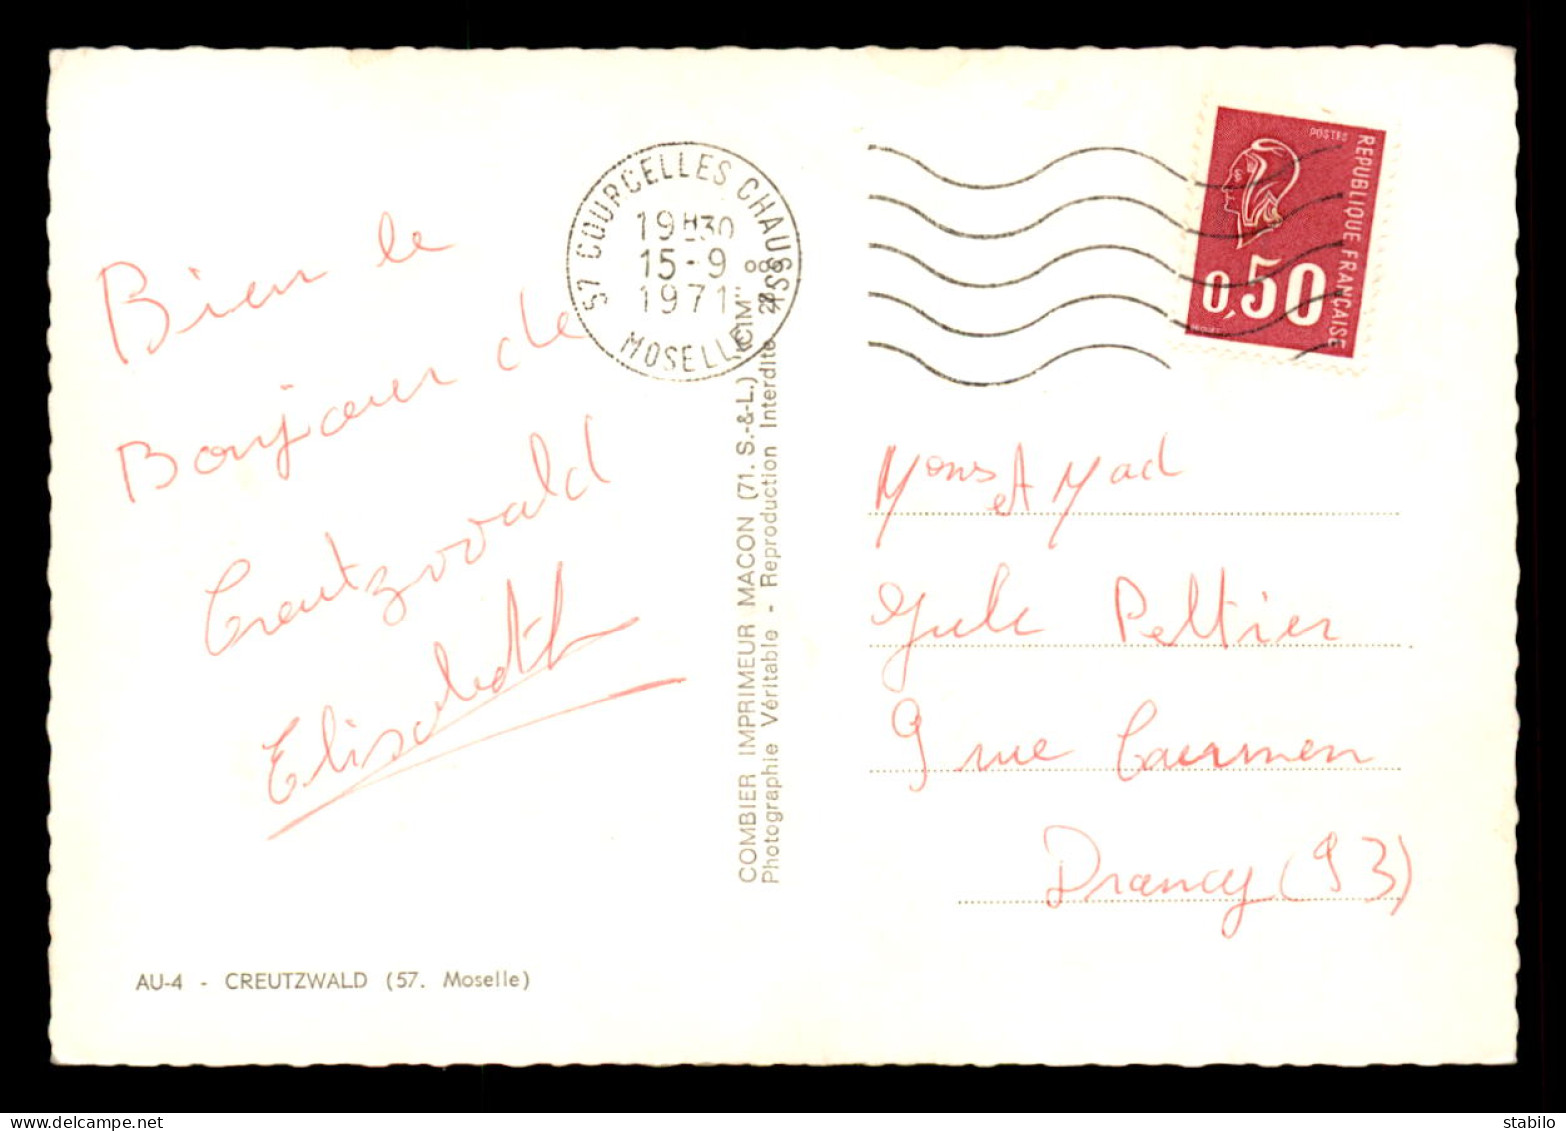 Bien le
Bonjour de
Creutzwald
Elisabeth
AU-4 - CREUTZWALD (57. Moselle)
57 COURCELLES CHAUSSY
19H30
15-9
1971
MOSELLE
COMBIER IMPRIMEUR MACON (71. S.-&-L.) "CIM"
Photographie Véritable - Reproduction Interdite
POSTES
REPUBLIQUE FRANÇAISE
0,50
Mons et Mad
Jule Peltier
9 rue Carmen
Drancy (93)
stabilo